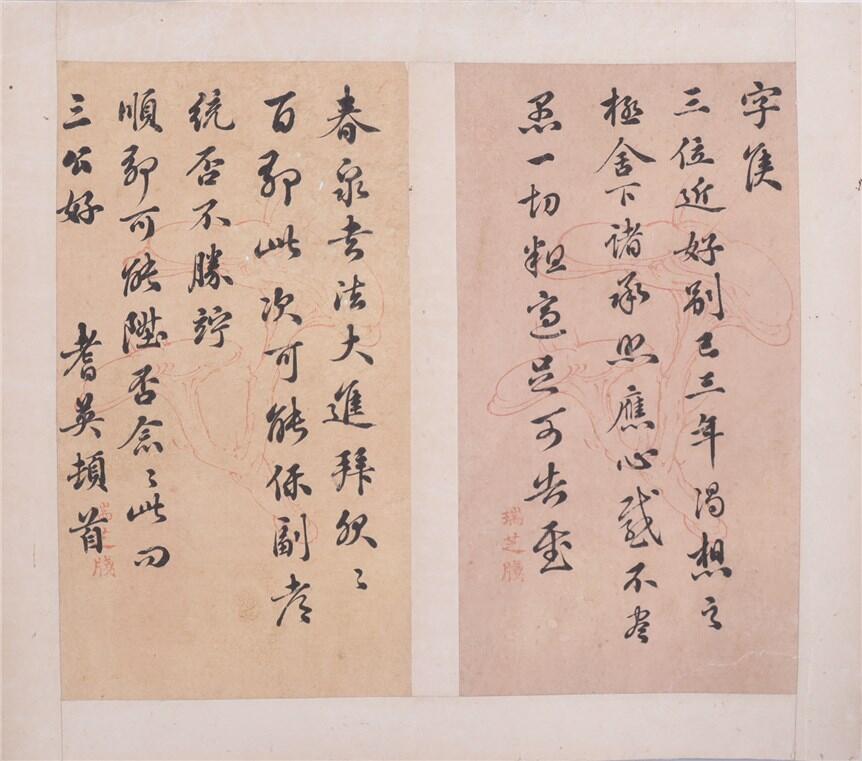 字候
三位近好别已三年渴想之
極舍下諸承照應心感不尽
愚一切粗適足可告慰
瑞芝牋
春泉書法大進拜服〻
百卯此次可能保副考
統否不勝竚
順卯可能陞否念〻此問
三公好 耆英頓首
瑞芝牋